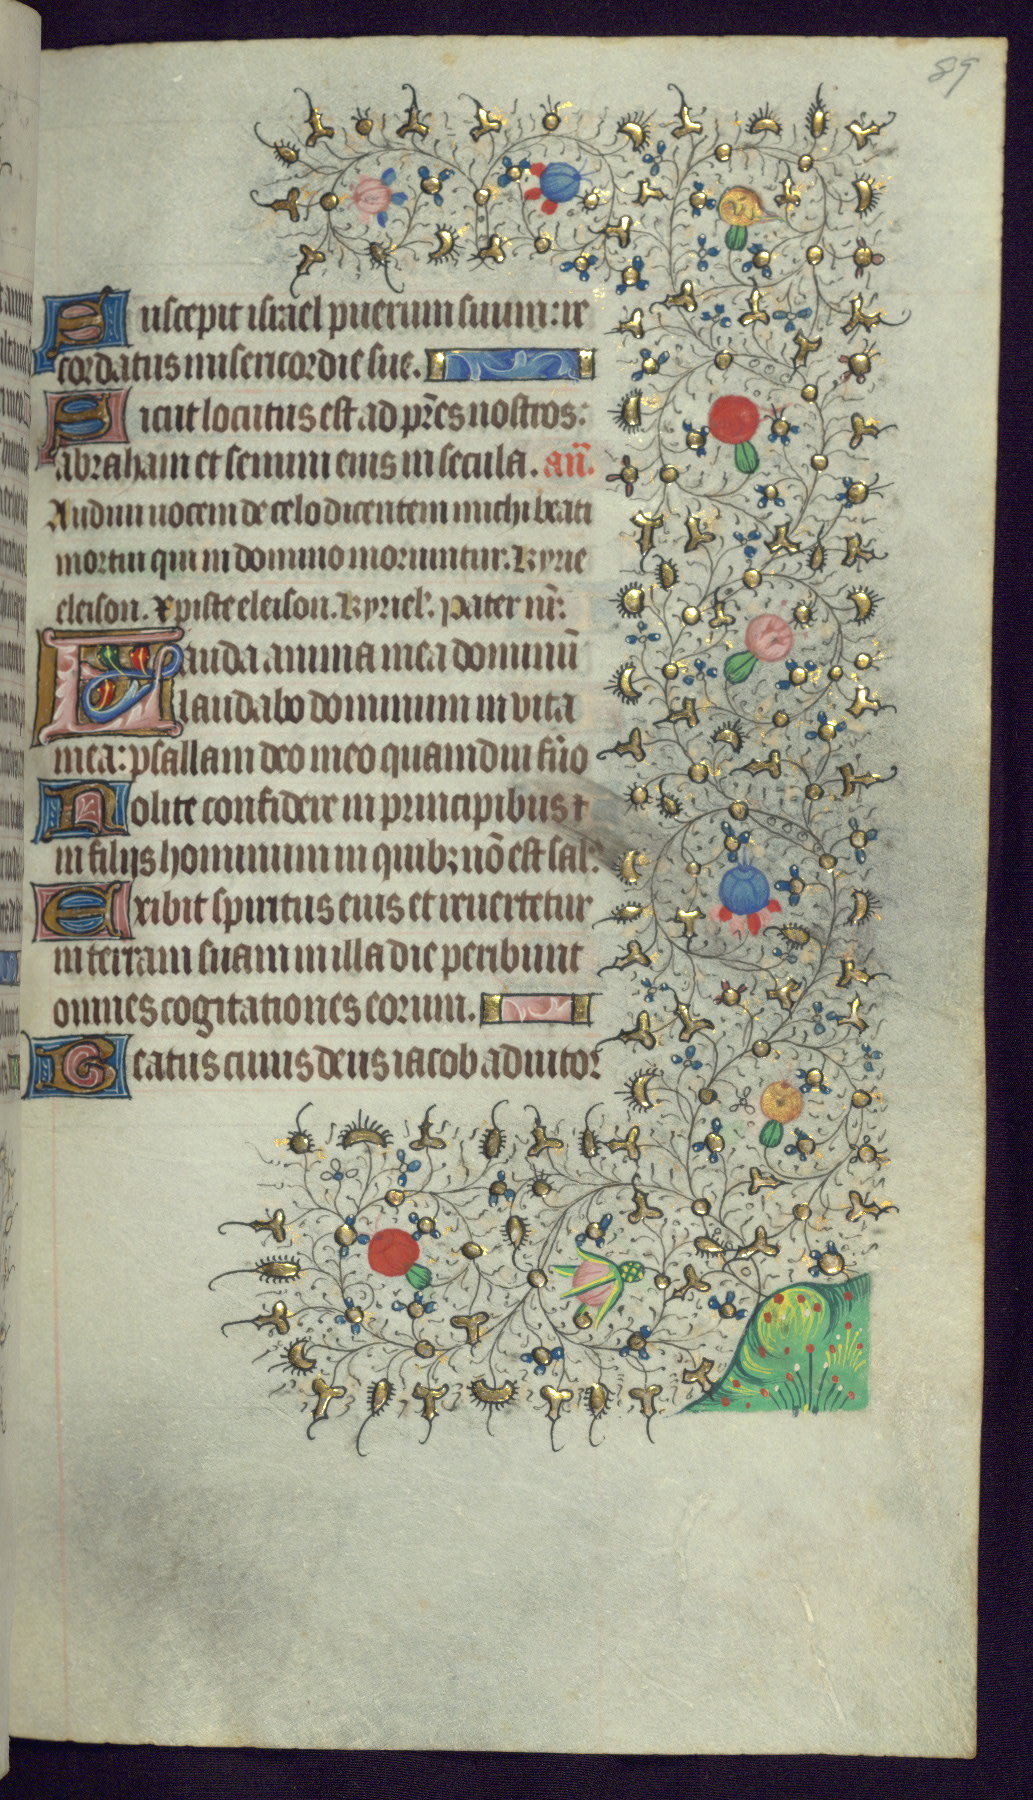 89
Suscepit israel puerum suum: re
cordatus misericordie sue.
Sicut locutus est ad p̄res nostros:
abraham et semini eius in secula. an̄.
Audiui uocem de celo dicentem michi beati
mortui qui in domino moriuntur. Kyrie
eleison. Xpiste eleison. Kyriel'. Pater nr̄:
Lauda anima mea dominū
laudabo dominum in vita
mea: psallam deo meo quamdiu fūo
Nolite confidere in principibus ⁊
in filijs hominum in quibꝫ nō est sal'.
Exibit spiritus eius et reuertetur
in terram suam in illa die peribunt
omnes cogitationes eorum.
Beatus cuius deus iacob adiutor